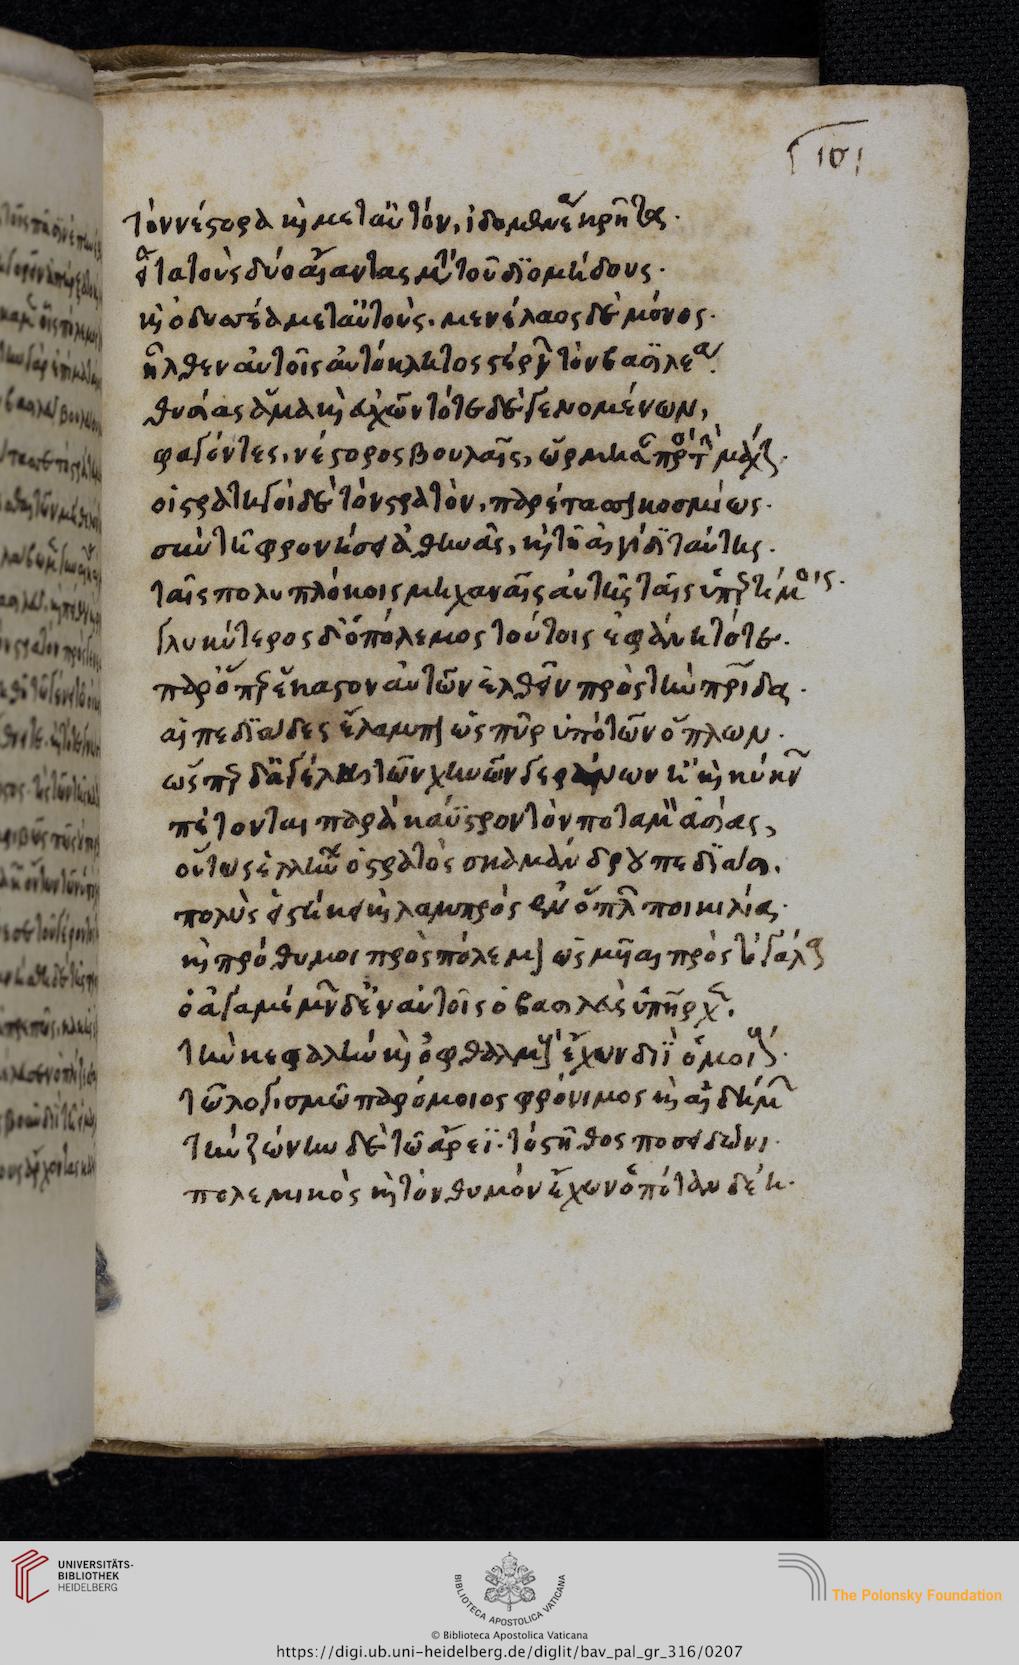 101
τὸν νέστορα καὶ μετ αὐτόν, ἰδομενέα κρήτης.
εἶτα τοὺς δύο αἴαντας μετὰ τοῦ διομήδους.
καὶ ὀδυσέα μετ αὐτοὺς. μενέλαος δὲ μόνος.
ἦλθεν αὐτοῖς αὐτόκλητος στέργων τὸν βασιλέα.
θυσίας ἅμα καὶ εὐχῶν τότε δὲ γενομένων,
φαγόντες, νέστορος βουλαῖς, ὥρμησαν πρὸς τὴν μάχην.
οἱ στρατηγοὶ δὲ τὸν στρατὸν, παρέτασσον κοσμίως.
σὺν τῇ φρονήσει ἀθηνᾶς, καὶ τῇ αἰγίδι ταύτης.
ταῖς πολυπλόκοις μηχαναῖς αὐτῆς ταῖς ὑπερτίμοις.
γλυκύτερος δ' ὁ πόλεμος τούτοις ἐφάνη τότε.
παρ' ὅπερ ἕκαστον αὐτῶν ἐλθεῖν πρὸς τὴν πατρίδα.
αἱ πεδιάδες ἔλαμπον ὡς πῦρ ὑπὸ τῶν ὅπλων.
ὥσπερ δ' ἀγέλη τῶν χηνῶν γεράνων ἢ καὶ κύκνων
πέτονται παρὰ κάϋστρον τὸν ποταμὸν ἀσίας,
οὕτως ἐπλήθυνεν ὁ στρατὸς σκαμάνδρου πεδιάσι.
πολὺς εἱστήκει καὶ λαμπρὸς ἐν ὅπλων ποικιλίᾳ.
καὶ πρόθυμοι πρὸς πόλεμον ὡς μυῖαι πρὸς τὸ γάλα
ὁ ἀγαμέμνων δ' ἐν αὐτοῖς ὁ βασιλεὺς ὑπῆρχεν.
τὴν κεφαλὴν καὶ ὀφθαλμοὺς ἔχων διῒ ὁμοίους.
τῷ λογισμῷ παρόμοιος φρόνιμος καὶ αἰδήμων
τὴν ζώνην δὲ τῷ ἄρεϊ. τὸ στῆθος ποσειδῶνι.
πολεμικὸς καὶ τὸν θυμὸν ἔχων ὁπόταν δέῃ.
UNIVERSITÄTS-
BIBLIOTHEK
HEIDELBERG
BIBLIOTECA APOSTOLICA VATICANA
The Polonsky Foundation
© Biblioteca Apostolica Vaticana
https://digi.ub.uni-heidelberg.de/diglit/bav_pal_gr_316/0207